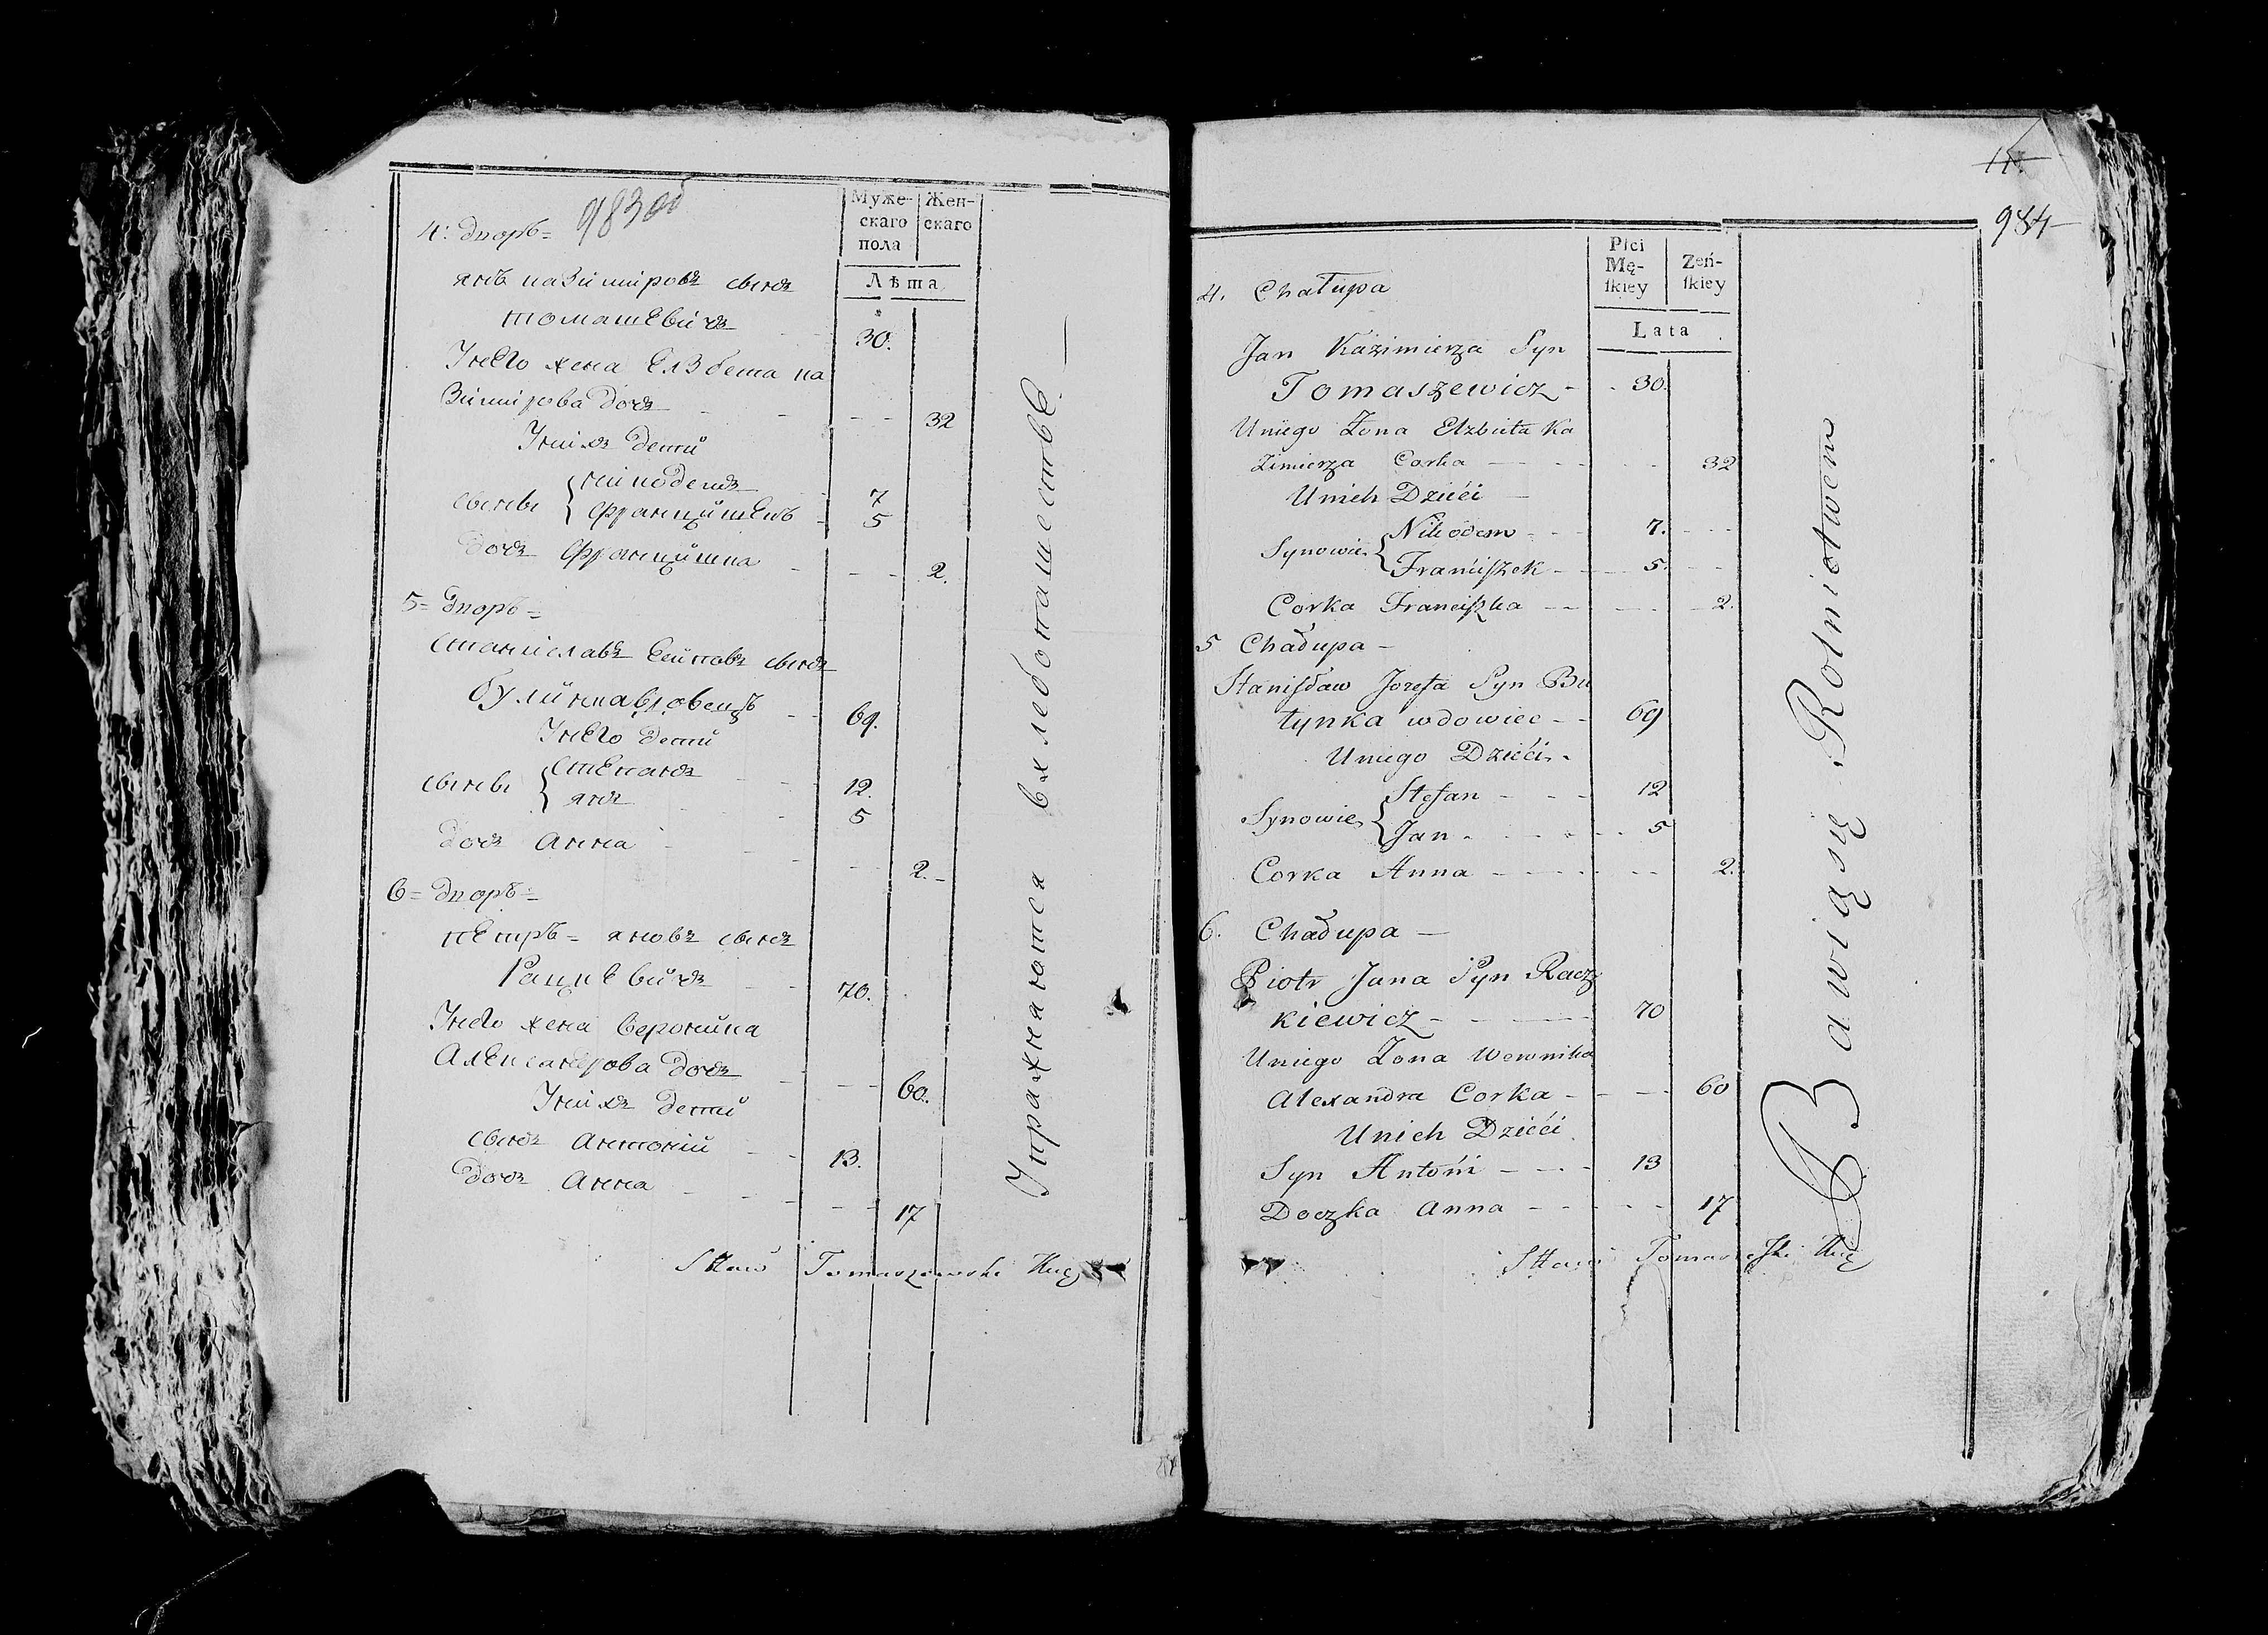 983 об
Муже-
скаго
пола
Жен-
скаго
Лѣта
4: Дворъ =
янъ казимировъ сынъ
томашевичъ - - 30.
Унего жена Елзбета ка
зимирова дочь - - - - 32
Унихъ дети
сыновъ { никодемъ - 7
Францишекъ - 5
дочь Францишка - - - - 2.
5 = Дворъ =
станиславъ Есиповъ сынъ
булинка вдовецъ - - 69.
Унего дети
сыновъ { стефанъ - - 12.
янъ - - 5
дочь Анна - - - - 2. -
6 = Дворъ =
петръ = яновъ сынъ
Рацкевичъ - - 70.
Унего жена вероника
Александрова дочь - - - - 60.
Унихъ дети
сынъ Антоній - - 13.
дочь Анна - - - - 17
Упражняются вхлебопашестве. —
Sttaw Tomaszewski
11.
984
Płci
Mę-
ſkiey
Zeń-
ſkiey
Lata
4. Chałupa
Jan Kazimierza Syn
Tomaszewicz - - 30.
Uniego Zona Elzbieta Ka
zimierza Corka - - - - 32
Unich Dzieći -
Synowie { Nikodem - - - 7. - - -
Franciſzek - - - 5. - -
Corka Franciſzka - - - - - 2.
5 Chałupa -
Staniſław Jozefa Syn Bu
łynka wdowiec - - 69
Uniego Dzieći -
Synowie { Stefan - - - 12
Jan - - - - - 5
Corka Anna - - - - - - 2.
6. Chałupa —
Piotr Jana Syn Racz
kiewicz - - - 70
Uniego Zona Weronika
Alexandra Corka - - - - 60
Unich Dzieći
Syn Antoni - - - - 13
Doczka Anna - - - - - 17
Bawią się Rolnictwem
Sttaw